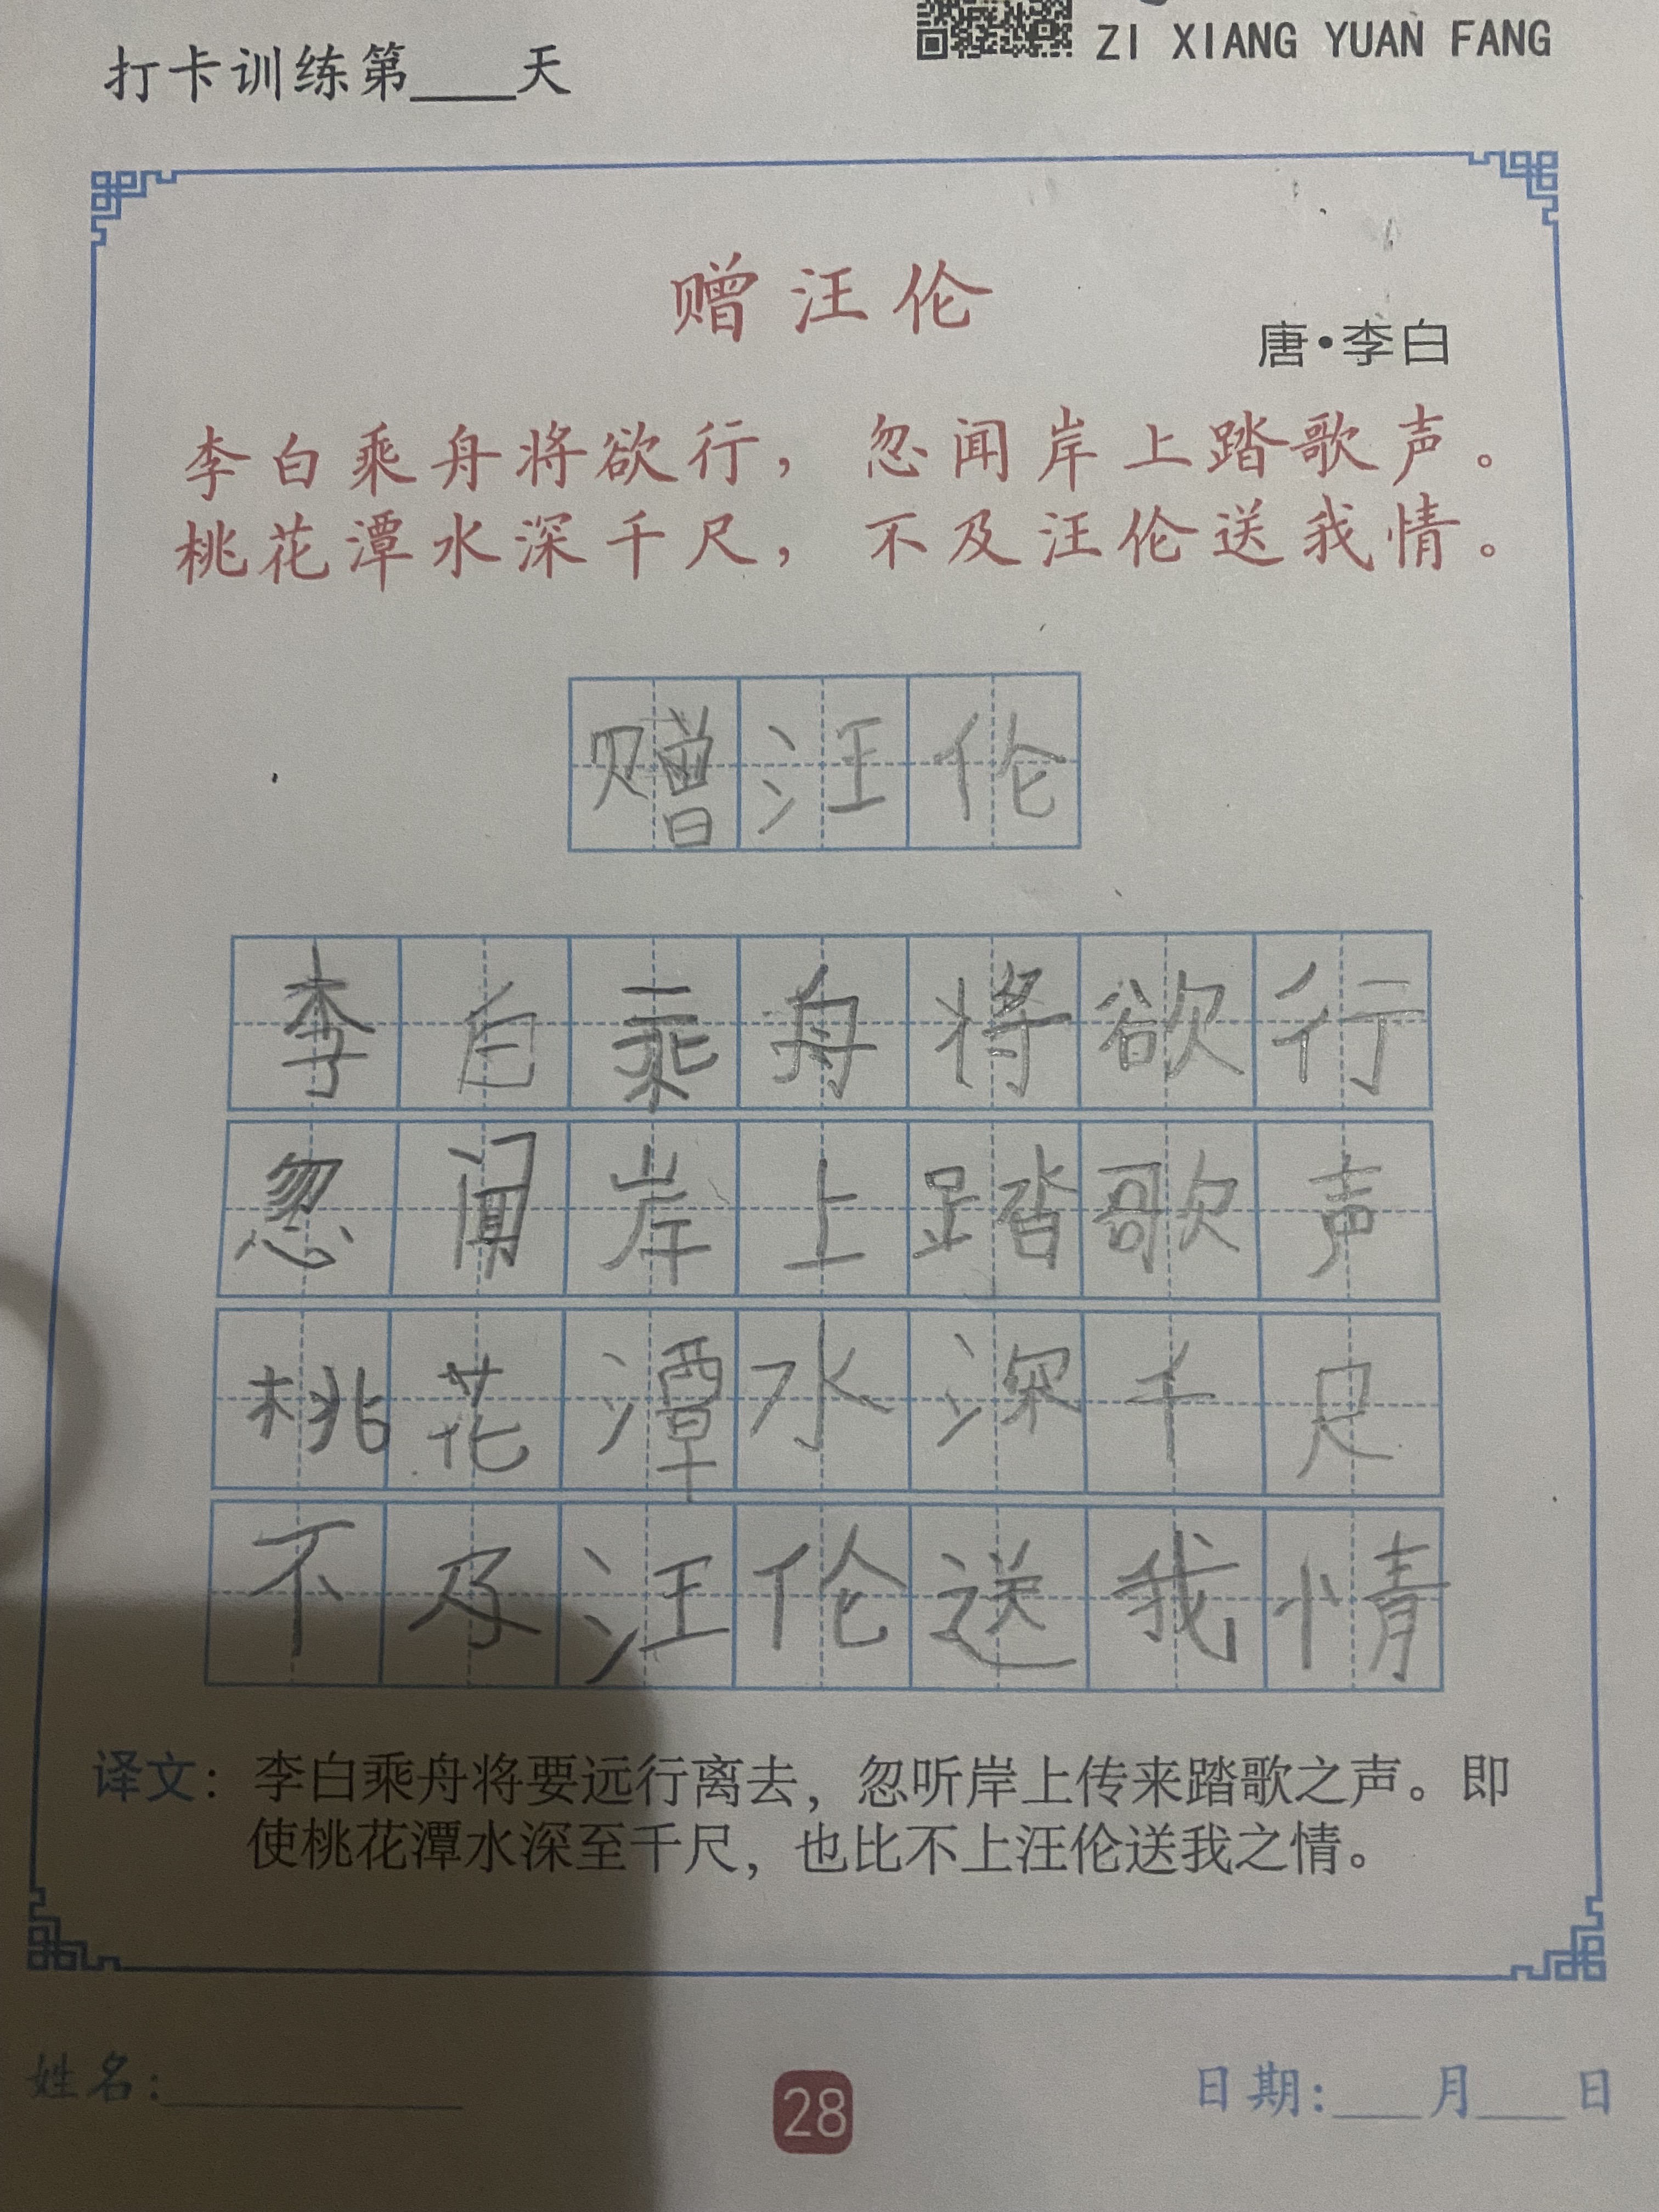 打卡训练第____天
ZI XIANG YUAN FANG
赠汪伦
唐·李白
李白乘舟将欲行，忽闻岸上踏歌声。
桃花潭水深千尺，不及汪伦送我情。
赠汪伦
李白乘舟将欲行
忽闻岸上踏歌声
桃花潭水深千足
不及汪伦送我情
译文：李白乘舟将要远行离去，忽听岸上传来踏歌之声。即
使桃花潭水深至千尺，也比不上汪伦送我之情。
姓名：________
28
日期：___月___日